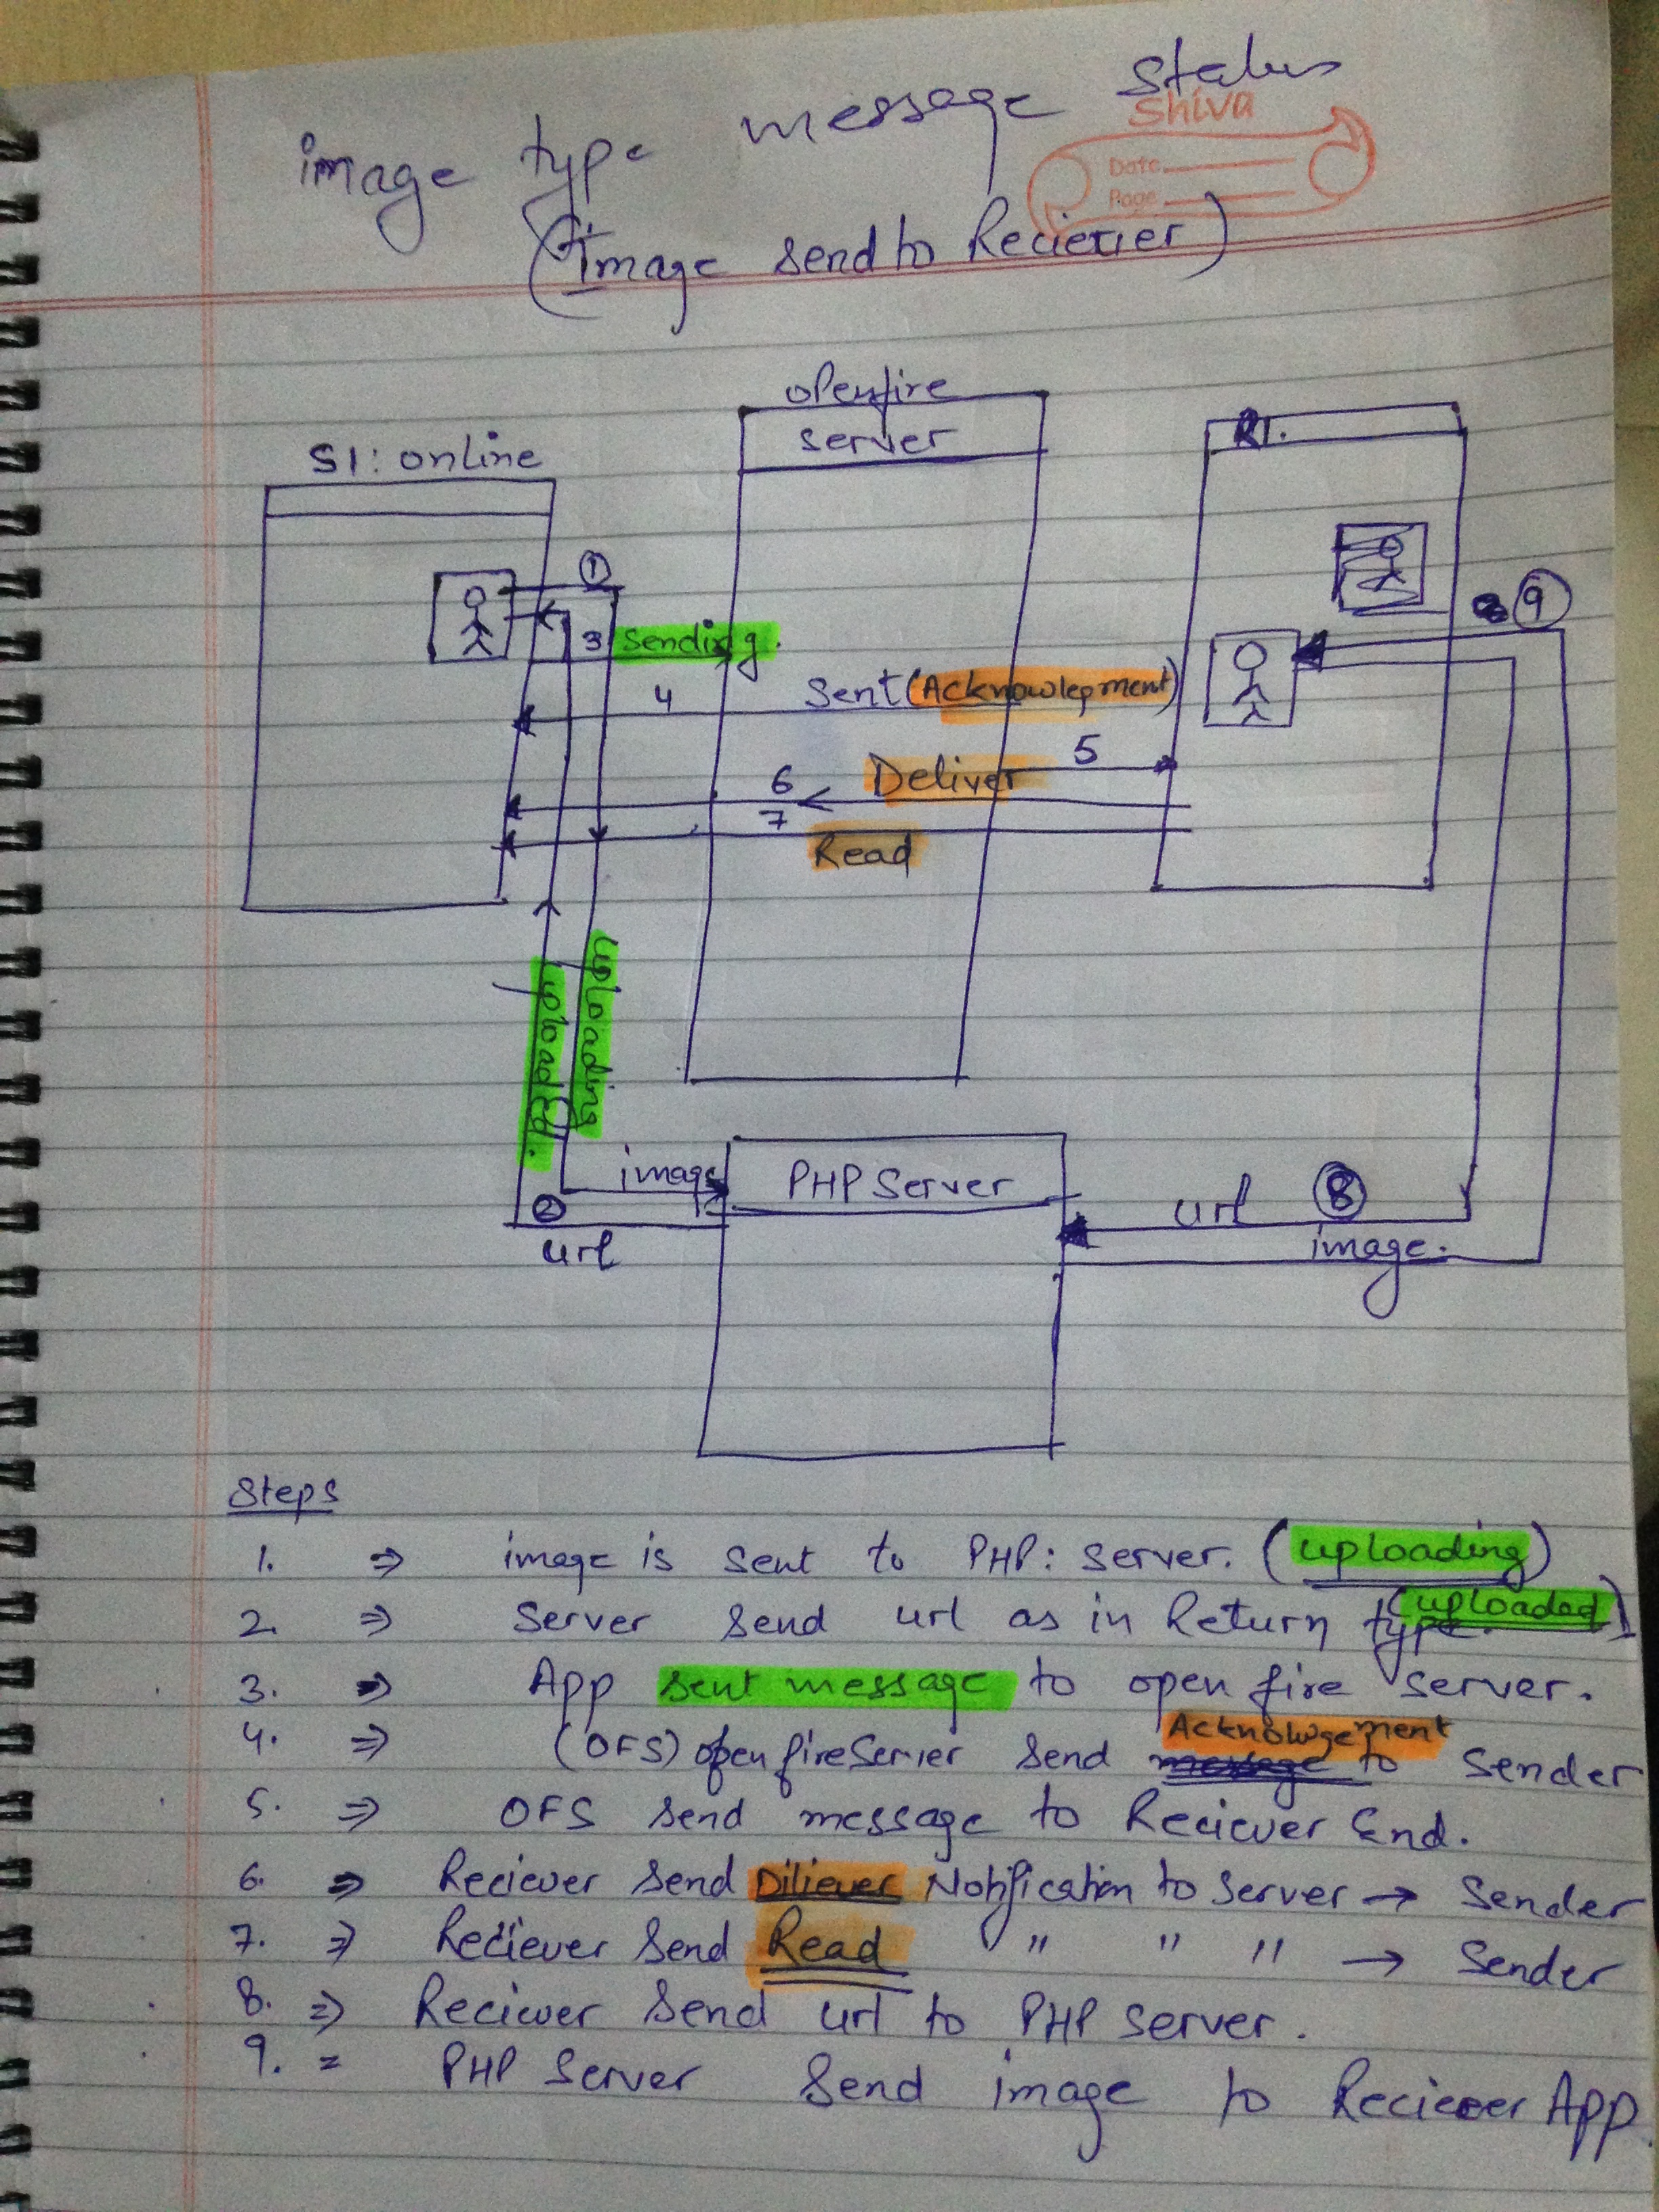 image type message status
Shiva
Date
Page
(Image send to Reciever)
openfire
server
S1: online
R1.
1
9
3 Sending.
4 Sent (Acknowlegment)
5
6 Deliver
7
Read
uploading
uploaded.
image
PHP Server
2
url
url 8
image.
Steps
1. ⇒ image is sent to PHP: server. (uploading)
2. ⇒ Server send url as in Return type. (uploaded)
3. ⇒ App sent message to open fire server.
4. ⇒ (OFS) openfireServer send Acknowgement to Sender
5. ⇒ OFS send message to Reciever End.
6. ⇒ Reciever send Diliever Notification to server → Sender
7. ⇒ Reciever send Read " " " → Sender
8. ⇒ Reciever send url to PHP server.
9. = PHP Server send image to Reciever App